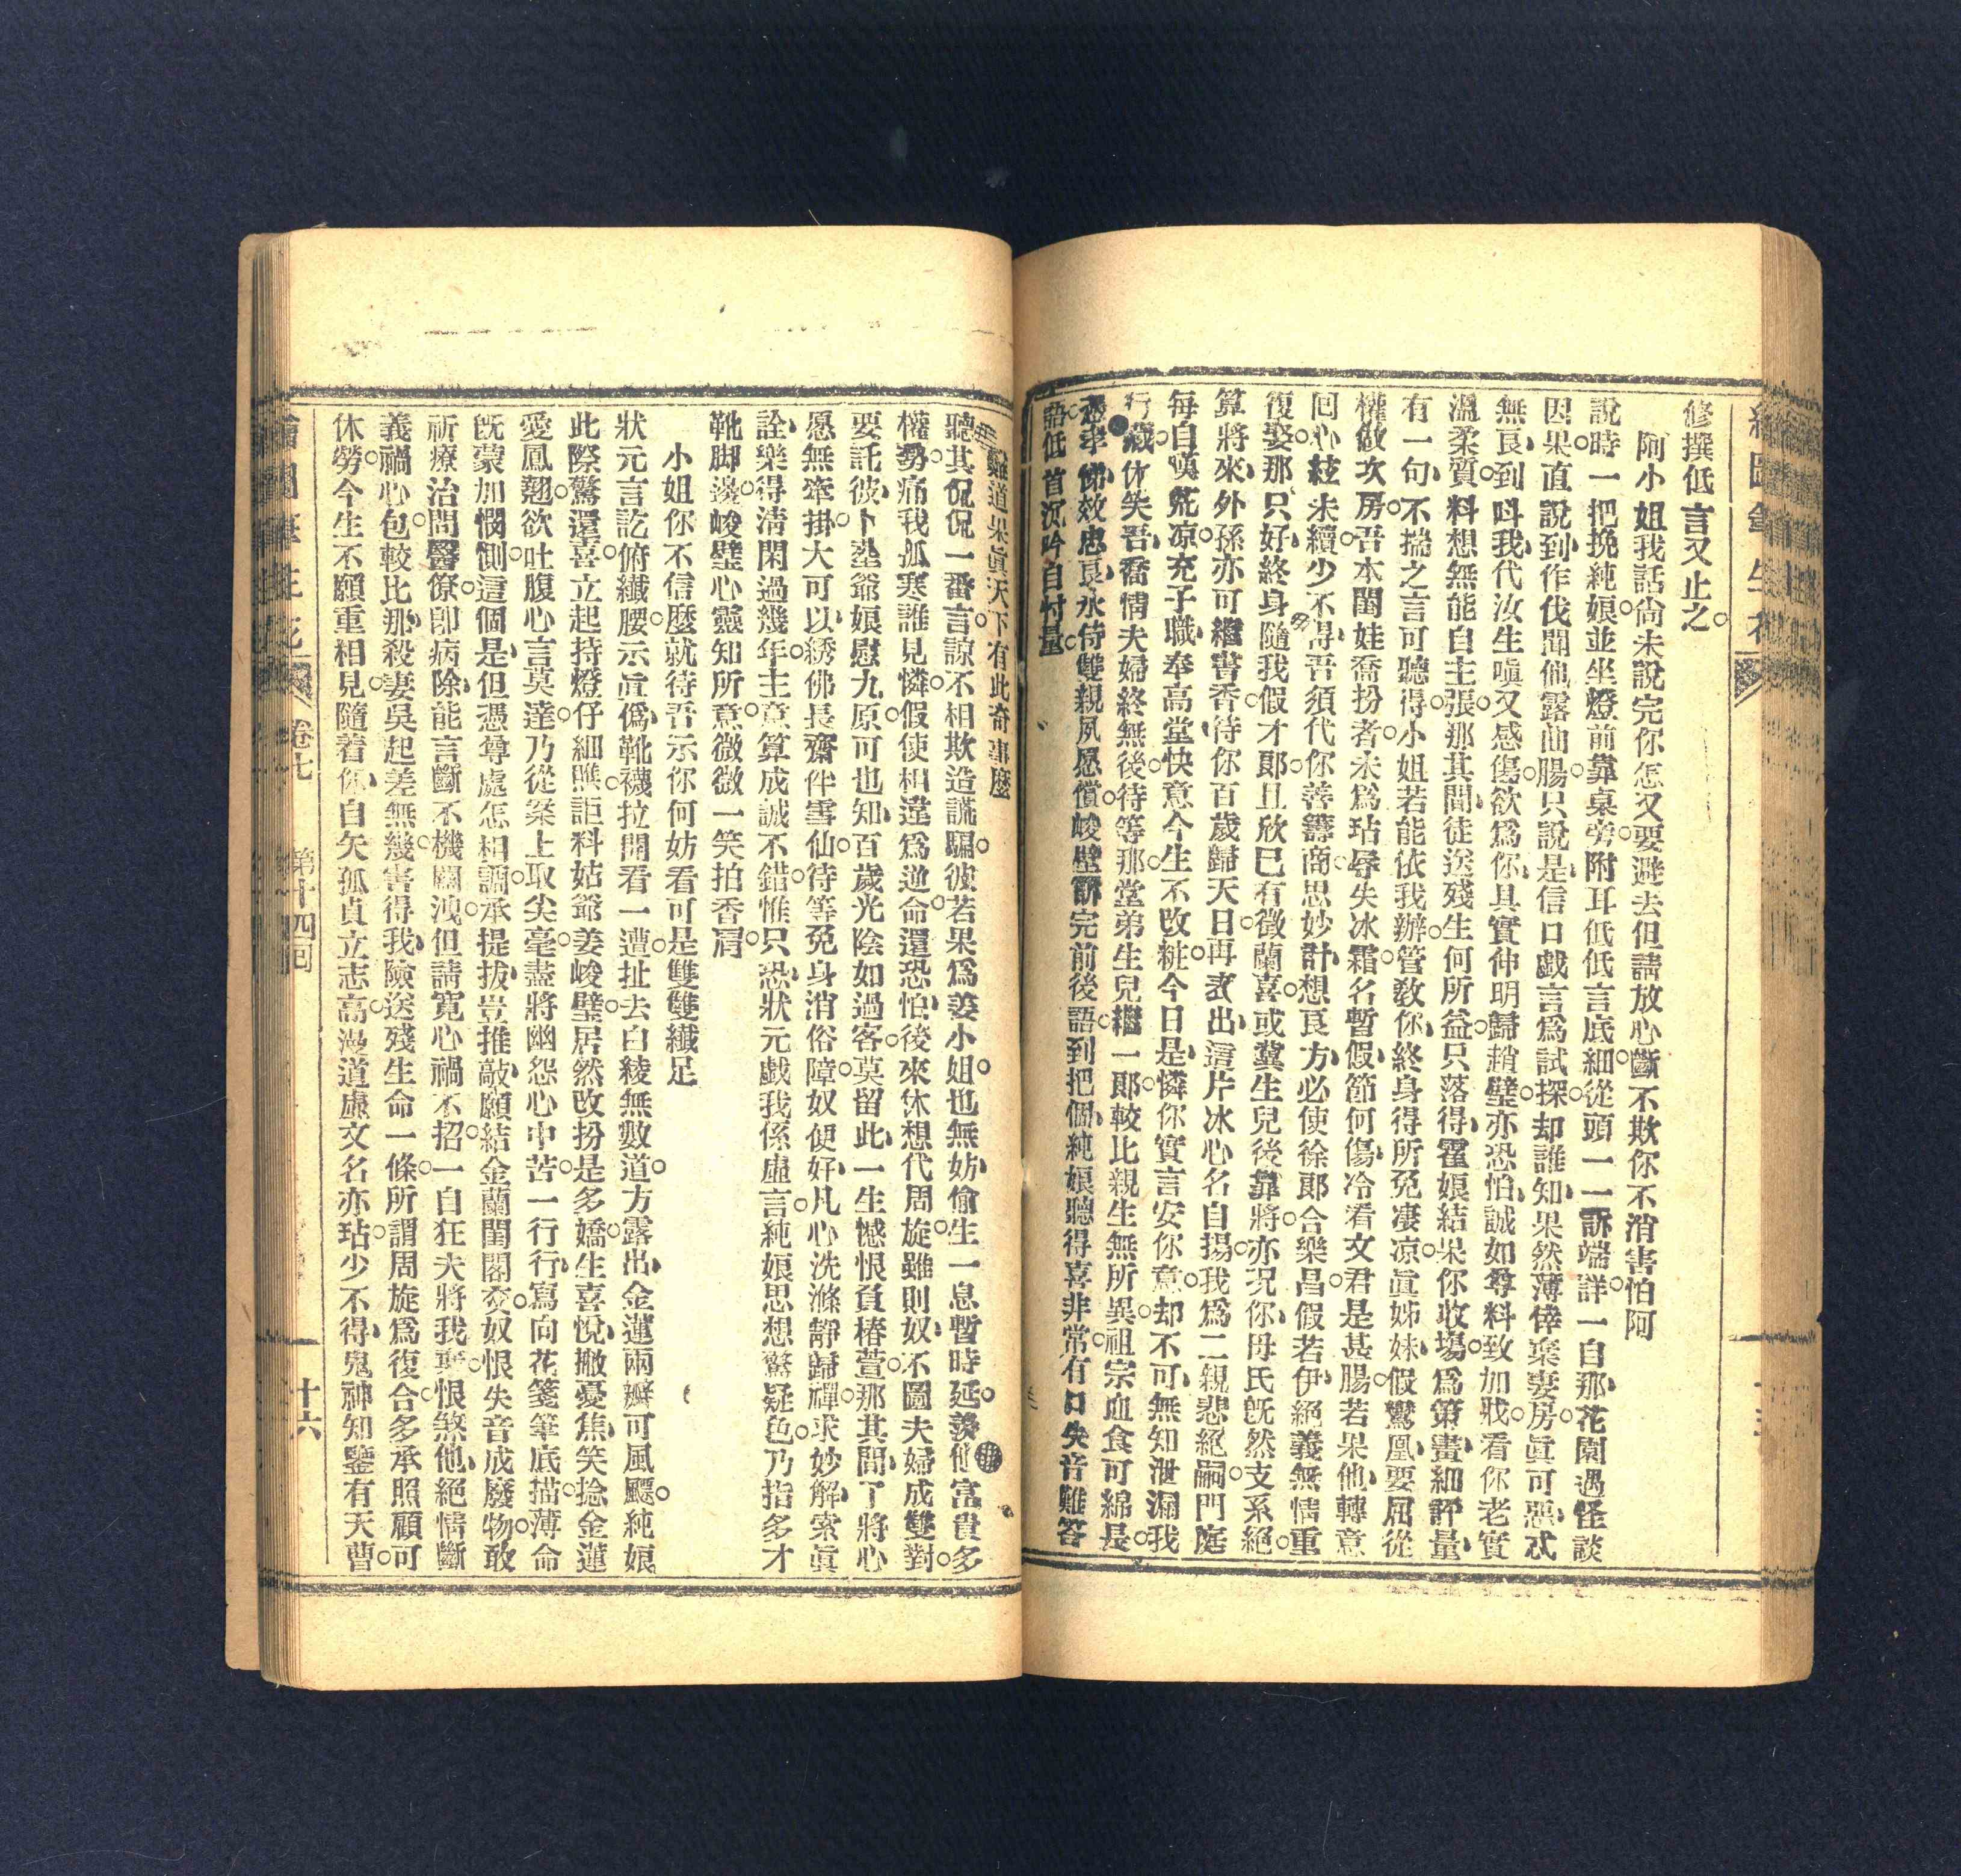 修撰低言又止之。
阿小姐我話尙未說完你怎又要避去但請放心斷不欺你不消害怕阿
說時一把挽純娘並坐燈前靠桌旁附耳低低言底細從頭一一訴端詳一自那花園遇怪談
因果直說到作伐聞他露曲腸只說是信口戲言爲試探却誰知果然薄倖棄妻房眞可惡忒
無良到呌我代汝生嗔又感傷欲爲你具實伸明歸趙璧亦恐怕誠如尊料致加戕看你老實
溫柔質料想無能自主張那其間徒送殘生何所益只落得霍娘結果你收塲爲第畫細評量
有一句不揣之言可聽得小姐若能依我辦管敎你終身得所免凄凉眞姊妹假鸞凰要屈從
權做次房吾本閨娃喬扮者未爲玷辱失冰霜名暫假節何傷冷看文君是甚腸若果他轉意
囘心絃未續少不得吾須代你善籌商思妙計想良方必使徐郞合樂昌假若伊絕義無情重
復娶那只好終身隨我假才郞且欣已有徵蘭喜或冀生兒後靠將亦况你母氏旣然支系絕
算將來外孫亦可繼書香待你百歲歸天日再表出這片冰心名自揚我爲二親悲絕嗣門庭
每自嘆荒凉充子職奉高堂快意今生不改粧今日是憐你實言安你意却不可無知泄漏我
行藏休笑吾喬情夫婦終無後待等那堂弟生兒繼一郞較比親生無所異祖宗血食可綿長
效忠良永侍雙親夙愿償峻壁訴完前後語到把個純娘聽得喜非常有口失音難答
語低首沉吟自忖量
難道果眞天下有此奇事麼
聽其侃侃一番言諒不相欺造謊騙彼若果爲姜小姐也無妨偷生一息暫時延羨他富貴多
權勢痛我孤寒誰見憐假使相違爲逆命還恐怕後來休想代周旋雖則奴不圖夫婦成雙對
要託彼卜塟爺娘慰九原可也知百歲光陰如過客莫留此一生憾恨負椿萱那其間了將心
愿無牽掛大可以綉佛長齋伴雪仙待等免身消俗障奴便好凡心洗滌靜歸禪求妙解索眞
詮樂得淸閑過幾年主意算成誠不錯惟只恐狀元戲我係虛言純娘思想驚疑色乃指多才
靴脚邊峻璧心靈知所意微微一笑拍香肩
小姐你不信麼就待吾示你何妨看可是雙雙纖足
狀元言訖俯纖腰示眞僞靴襪拉開看一遭扯去白綾無數道方露出金蓮兩瓣可風颺純娘
此際驚還喜立起持燈仔細瞧詎料姑爺姜峻璧居然改扮是多嬌生喜悅撇憂焦笑捻金蓮
愛鳳翹欲吐腹心言莫達乃從案上取尖毫盡將幽怨心中苦一行行寫向花箋筆底描薄命
旣蒙加憫惻這個是但憑尊處怎相調承提拔豈推敲願結金蘭閨閣交奴恨失音成廢物敢
祈療治問醫僚卽病除能言斷不機關洩但請寬心禍不招一自狂夫將我棄恨煞他絕情斷
義禍心包較比那殺妻吳起差無幾害得我險送殘生命一條所謂周旋爲復合多承照顧可
休勞今生不願重相見隨着你自矢孤貞立志高漫道虛文名亦玷少不得鬼神知鑒有天曹
卷七　第十四回
十六